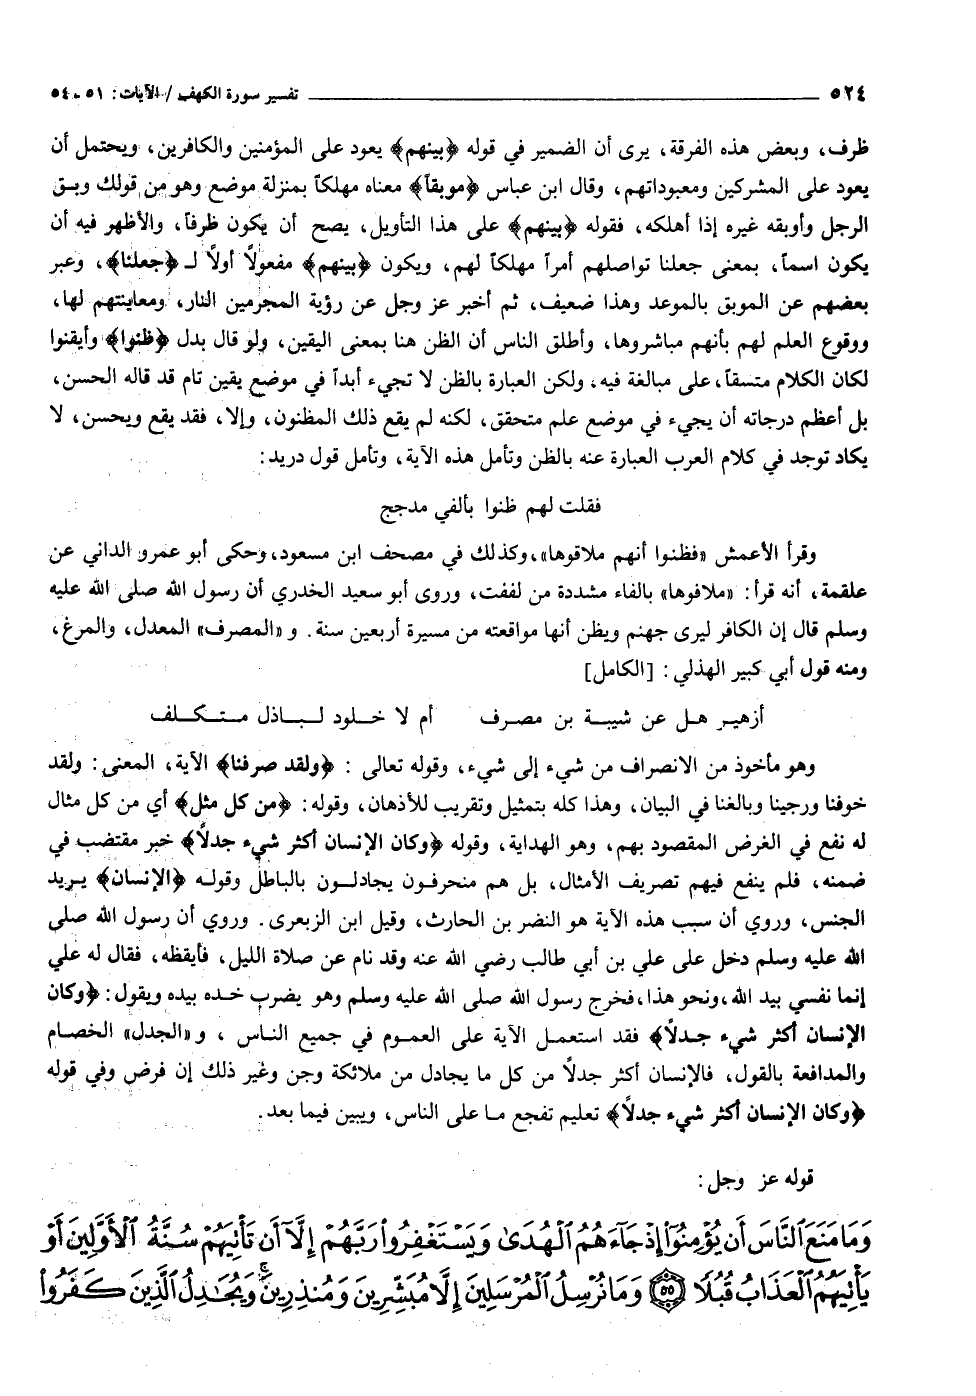 ٥٢٤ ـــــــــ تفسير سورة الكهف / الآيات: ٥١ - ٥٤
ظرف، وبعض هذه الفرقة، يرى أن الضمير في قوله ﴿بينهم﴾ يعود على المؤمنين والكافرين، ويحتمل أن
يعود على المشركين ومعبوداتهم، وقال ابن عباس ﴿موبقاً﴾ معناه مهلكاً بمنزلة موضع وهو من قولك وبق
الرجل وأوبقه غيره إذا أهلكه، فقوله ﴿بينهم﴾ على هذا التأويل، يصح أن يكون ظرفاً، والأظهر فيه أن
يكون اسماً، بمعنى جعلنا تواصلهم أمراً مهلكاً لهم، ويكون ﴿بينهم﴾ مفعولًا أولًا لـ ﴿جعلنا﴾، وعبر
بعضهم عن الموبق بالموعد وهذا ضعيف، ثم أخبر عز وجل عن رؤية المجرمين النار، ومعاينتهم لها،
ووقوع العلم لهم بأنهم مباشروها، وأطلق الناس أن الظن هنا بمعنى اليقين، ولو قال بدل ﴿ظنوا﴾ وأيقنوا
لكان الكلام متسقاً، على مبالغة فيه، ولكن العبارة بالظن لا تجيء أبداً في موضع يقين تام قد قاله الحسن،
بل أعظم درجاته أن يجيء في موضع علم متحقق، لكنه لم يقع ذلك المظنون، وإلا، فقد يقع ويحسن، لا
يكاد توجد في كلام العرب العبارة عنه بالظن وتأمل هذه الآية، وتأمل قول دريد:
فقلت لهم ظنوا بألفي مدجج
وقرأ الأعمش «فظنوا أنهم ملاقوها»، وكذلك في مصحف ابن مسعود، وحكى أبو عمرو الداني عن
علقمة، أنه قرأ: «ملافوها» بالفاء مشددة من لففت، وروى أبو سعيد الخدري أن رسول الله صلى الله عليه
وسلم قال إن الكافر ليرى جهنم ويظن أنها مواقعته من مسيرة أربعين سنة. و «المصرف» المعدل، والمرغ،
ومنه قول أبي كبير الهذلي: [الكامل]
أزهير هل عن شيبة بن مصرف أم لا خلود لباذل متكلف
وهو مأخوذ من الانصراف من شيء إلى شيء، وقوله تعالى : ﴿ولقد صرفنا﴾ الآية، المعنى: ولقد
خوفنا ورجينا وبالغنا في البيان، وهذا كله بتمثيل وتقريب للأذهان، وقوله: ﴿من كل مثل﴾ أي من كل مثال
له نفع في الغرض المقصود بهم، وهو الهداية، وقوله ﴿وكان الإنسان أكثر شيء جدلًا﴾ خبر مقتضب في
ضمنه، فلم ينفع فيهم تصريف الأمثال، بل هم منحرفون يجادلون بالباطل وقوله ﴿الإنسان﴾ يريد
الجنس، وروي أن سبب هذه الآية هو النضر بن الحارث، وقيل ابن الزبعرى. وروي أن رسول الله صلى
الله عليه وسلم دخل على علي بن أبي طالب رضي الله عنه وقد نام عن صلاة الليل، فأيقظه، فقال له علي
إنما نفسي بيد الله، ونحو هذا، فخرج رسول الله صلى الله عليه وسلم وهو يضرب خده بيده ويقول: ﴿وكان
الإنسان أكثر شيء جدلًا﴾ فقد استعمل الآية على العموم في جميع الناس ، و «الجدل» الخصام
والمدافعة بالقول، فالإنسان أكثر جدلًا من كل ما يجادل من ملائكة وجن وغير ذلك إن فرض وفي قوله
﴿وكان الإنسان أكثر شيء جدلًا﴾ تعليم تفجع ما على الناس، ويبين فيما بعد.
قوله عز وجل:
وَمَا مَنَعَ ٱلنَّاسَ أَن يُؤْمِنُوٓا۟ إِذْ جَآءَهُمُ ٱلْهُدَىٰ وَيَسْتَغْفِرُوا۟ رَبَّهُمْ إِلَّآ أَن تَأْتِيَهُمْ سُنَّةُ ٱلْأَوَّلِينَ أَوْ
يَأْتِيَهُمُ ٱلْعَذَابُ قُبُلًا ٥٥ وَمَا نُرْسِلُ ٱلْمُرْسَلِينَ إِلَّا مُبَشِّرِينَ وَمُنذِرِينَ ۚ وَيُجَٰدِلُ ٱلَّذِينَ كَفَرُوا۟